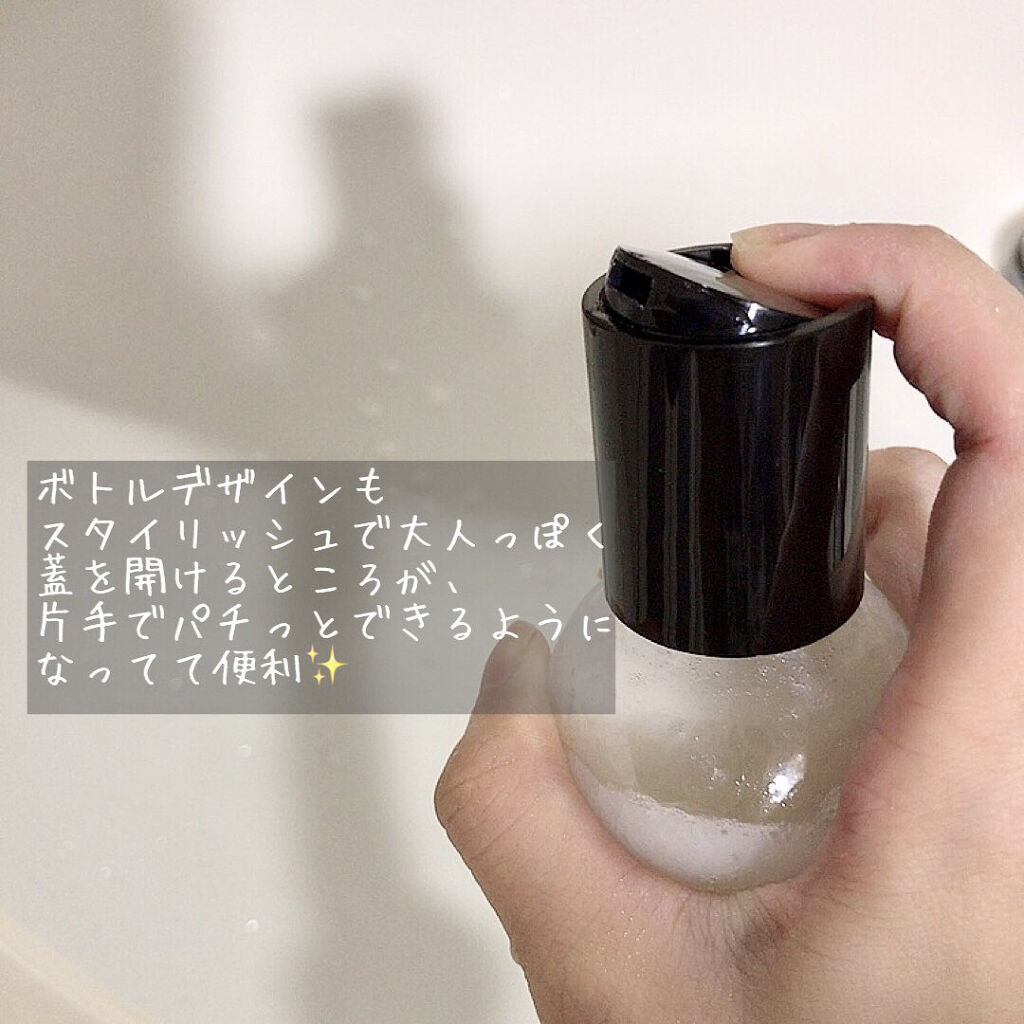 ボトルデザインも
スタイリッシュで大人っぽく
蓋を開けるところが、
片手でパチっとできるように
なってて便利✨